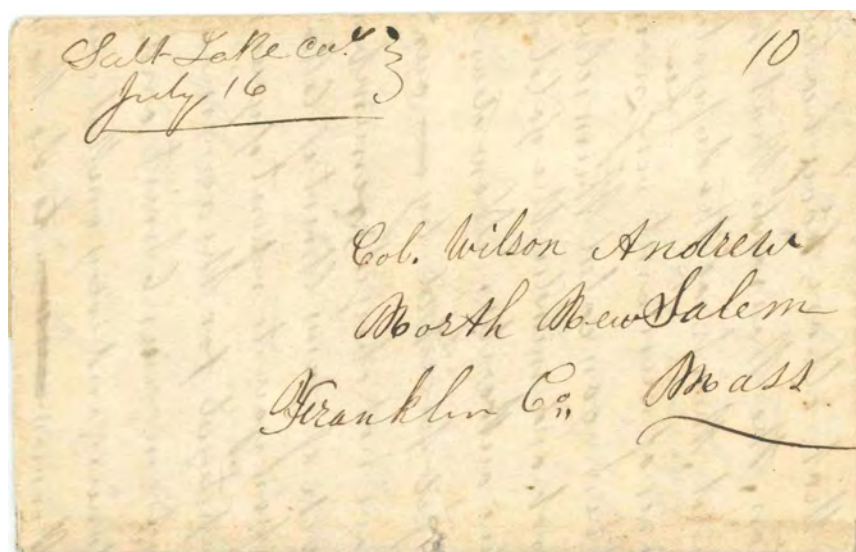 Salt Lake Cal.
July 16
10
Col. Wilson Andrew
North New Salem
Franklin Co., Mass